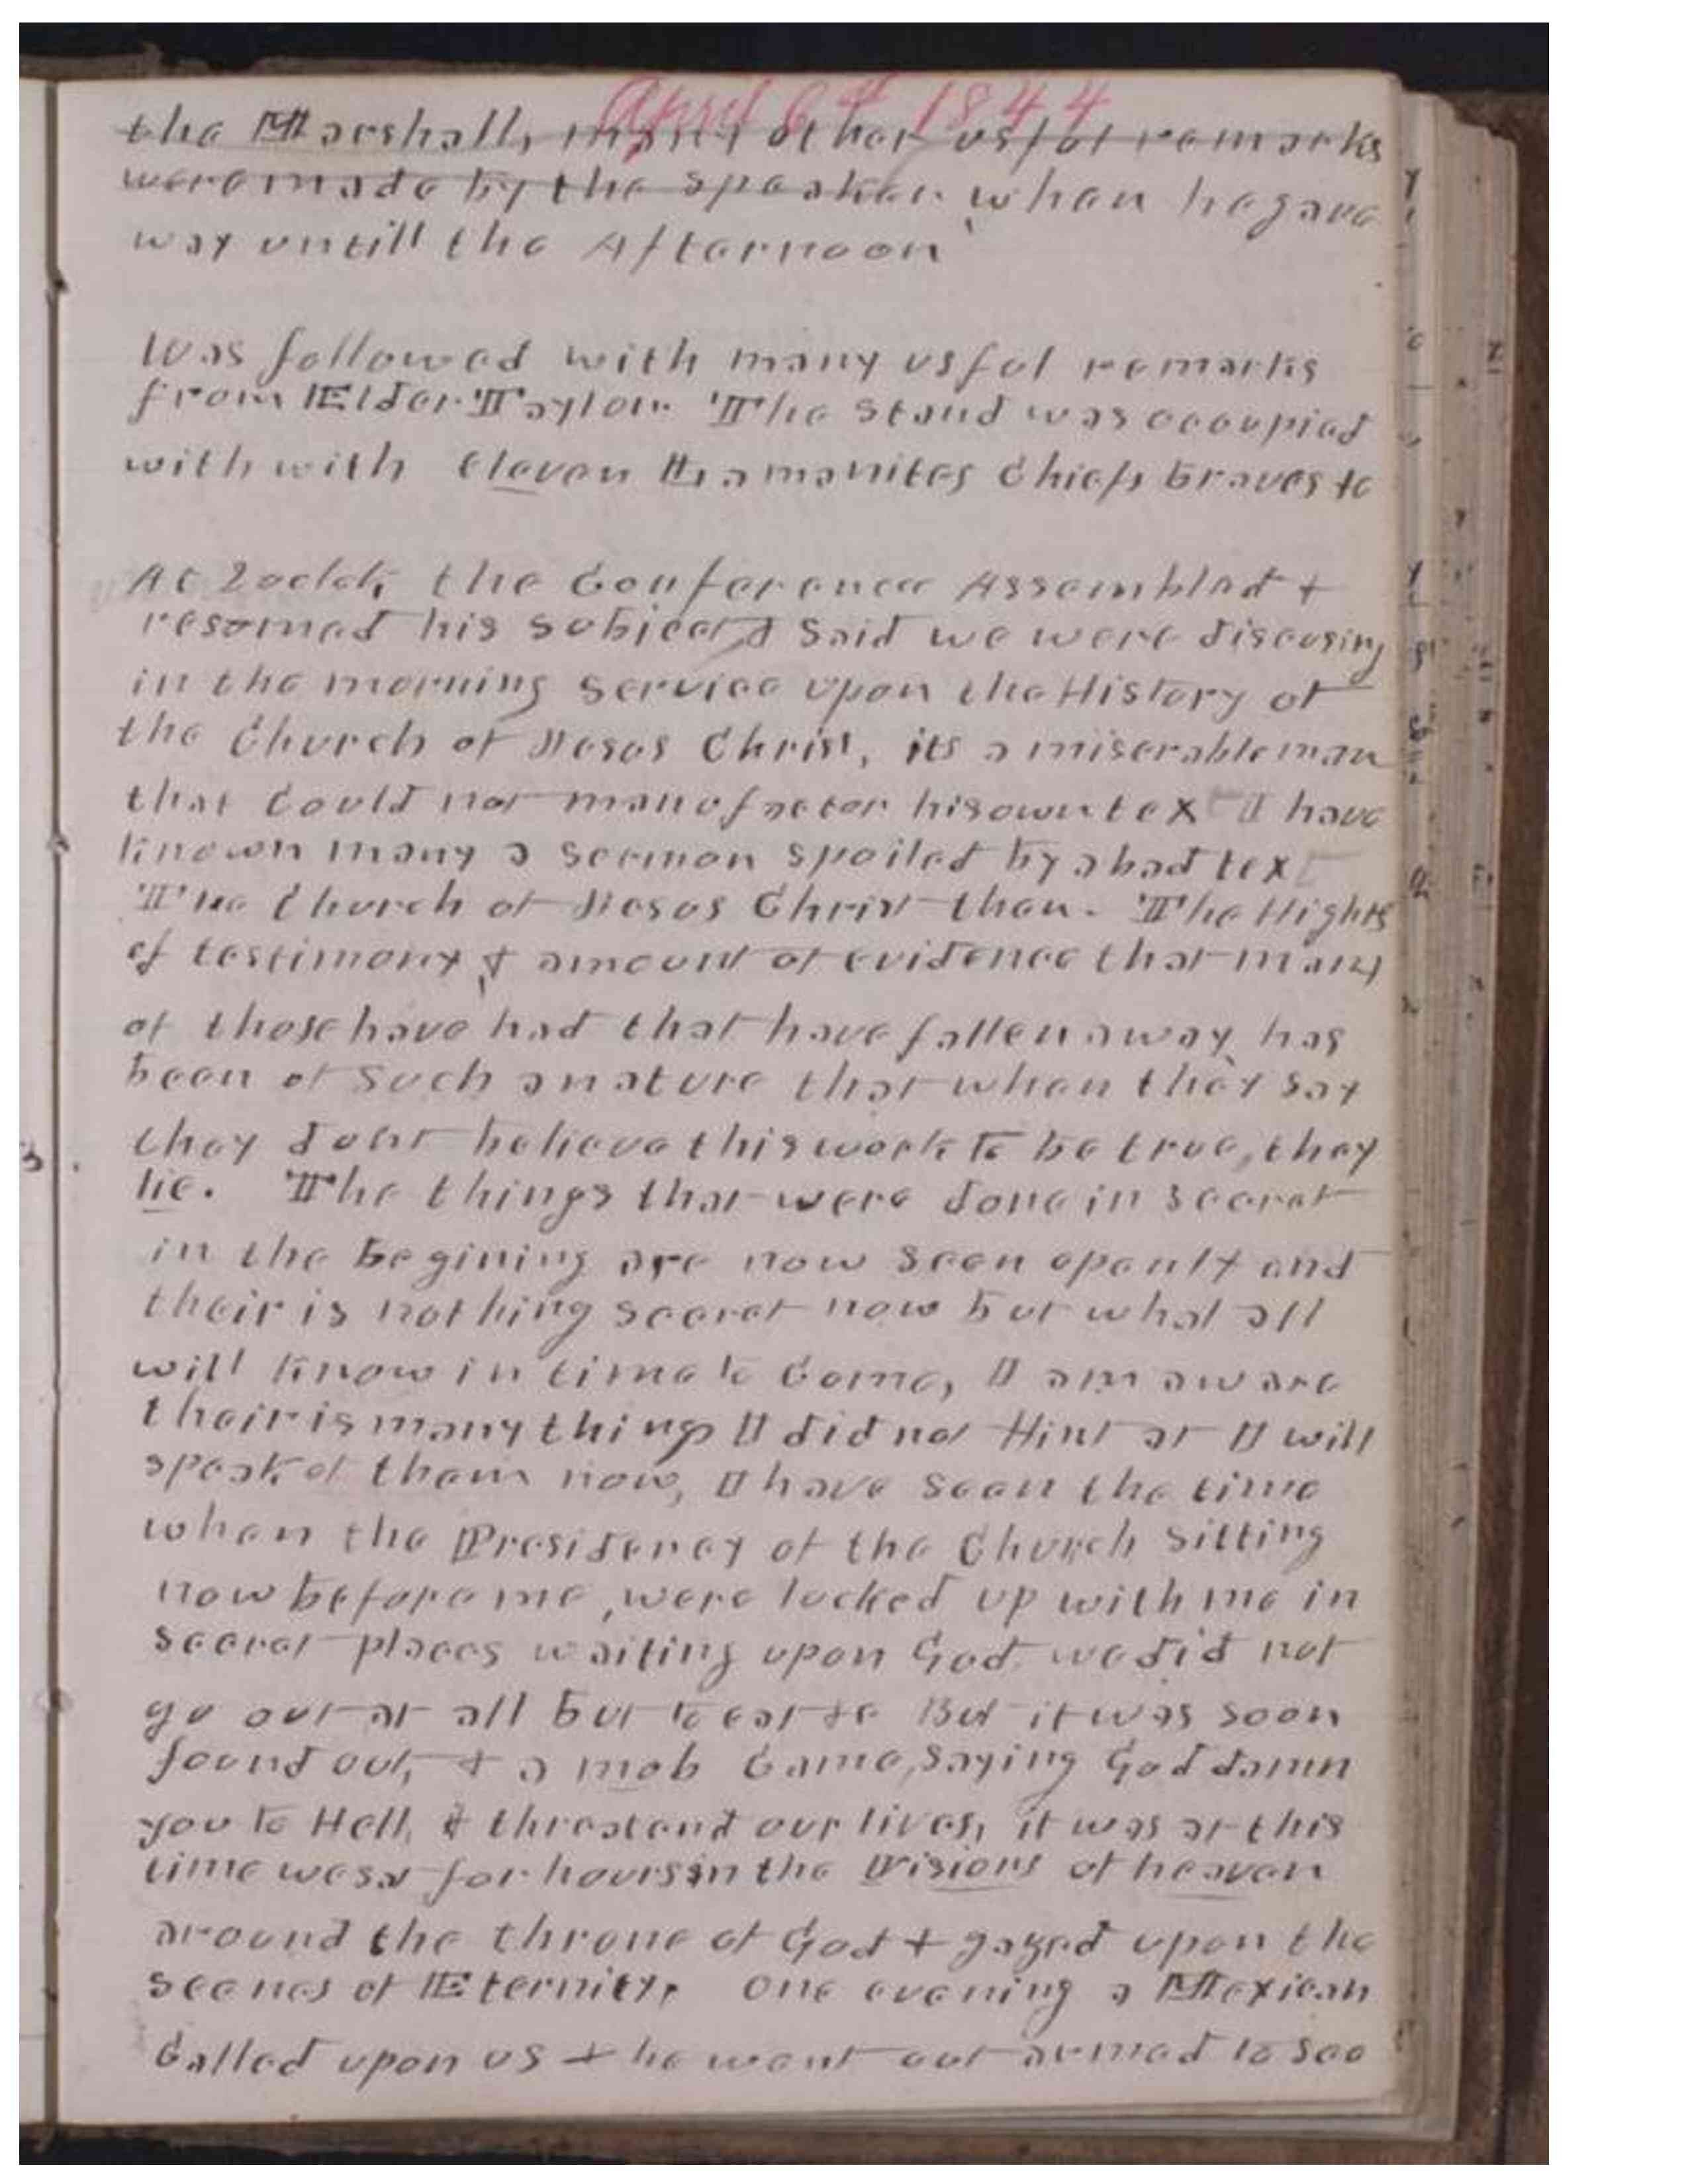 April 6th 1844
the Marshall, many other usful remarks
were made by the speaker. when he gave
way untill the Afternoon
Was followed with many usful remarks
from Elder Taylor. The stand was occupied
with with Eleven Lamanites Chiefs braves &c
At 2 oclck, the Conference Assembled &
resumed his subject & said we were discussing
in the morning service upon the History of
the Church of Jesus Christ, its a miserable man
that Could not manufacter his own text I have
known many a sermon spoiled by a bad text
The Church of Jesus Christ then. The Hights
of testimony & amount of evidence that many
of those have had that have fallen away, has
been of such a nature that when they say
they dont believe this work to be true, they
lie. The things that were done in secret
in the begining are now seen openly and
their is nothing secret now but what all
will know in time to Come, I am aware
their is many things I did not Hint at I will
speak of them now, I have seen the time
when the Presidency of the Church sitting
now before me, were locked up with me in
secret places waiting upon God we did not
go out at all but to eat &c But it was soon
found out, & a mob Came, saying God damn
you to Hell, & threatend our lives, it was at this
time we sat for hours in the Visions of heaven
around the throne of God & gazed upon the
scenes of Eternity. One evening a Mexican
Called upon us & he went out armed to see